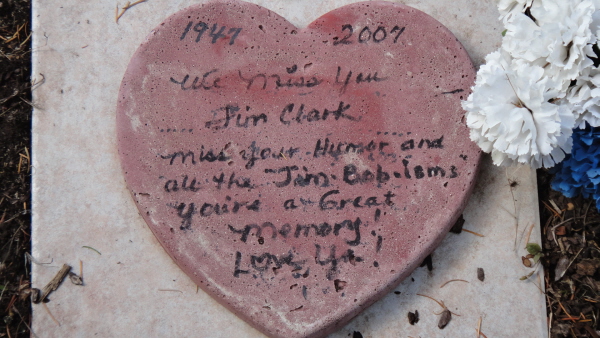 1947 2007
We Miss You
Jim Clark
miss your Humor and
all the "Jim-Bob-isms"
you're a Great
Memory!
Love Ya!